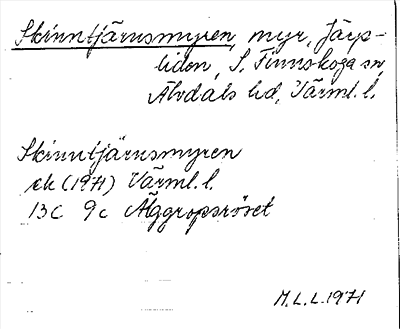 Skinntjärnsmyren, myr, Järp-
liden, S. Finnskoga sn,
Älvdals hd, Värml. l.
Skinntjärnsmyren
ek (1971) Värml. l.
13C 9c Älggropsröset
M.L.L. 1971